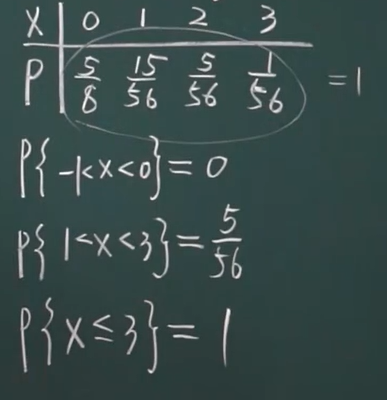 X 0 1 2 3
P 5/8 15/56 5/56 1/56 =1
P{-1<x<0}=0
P{1<x<3}=5/56
P{x≤3}=1